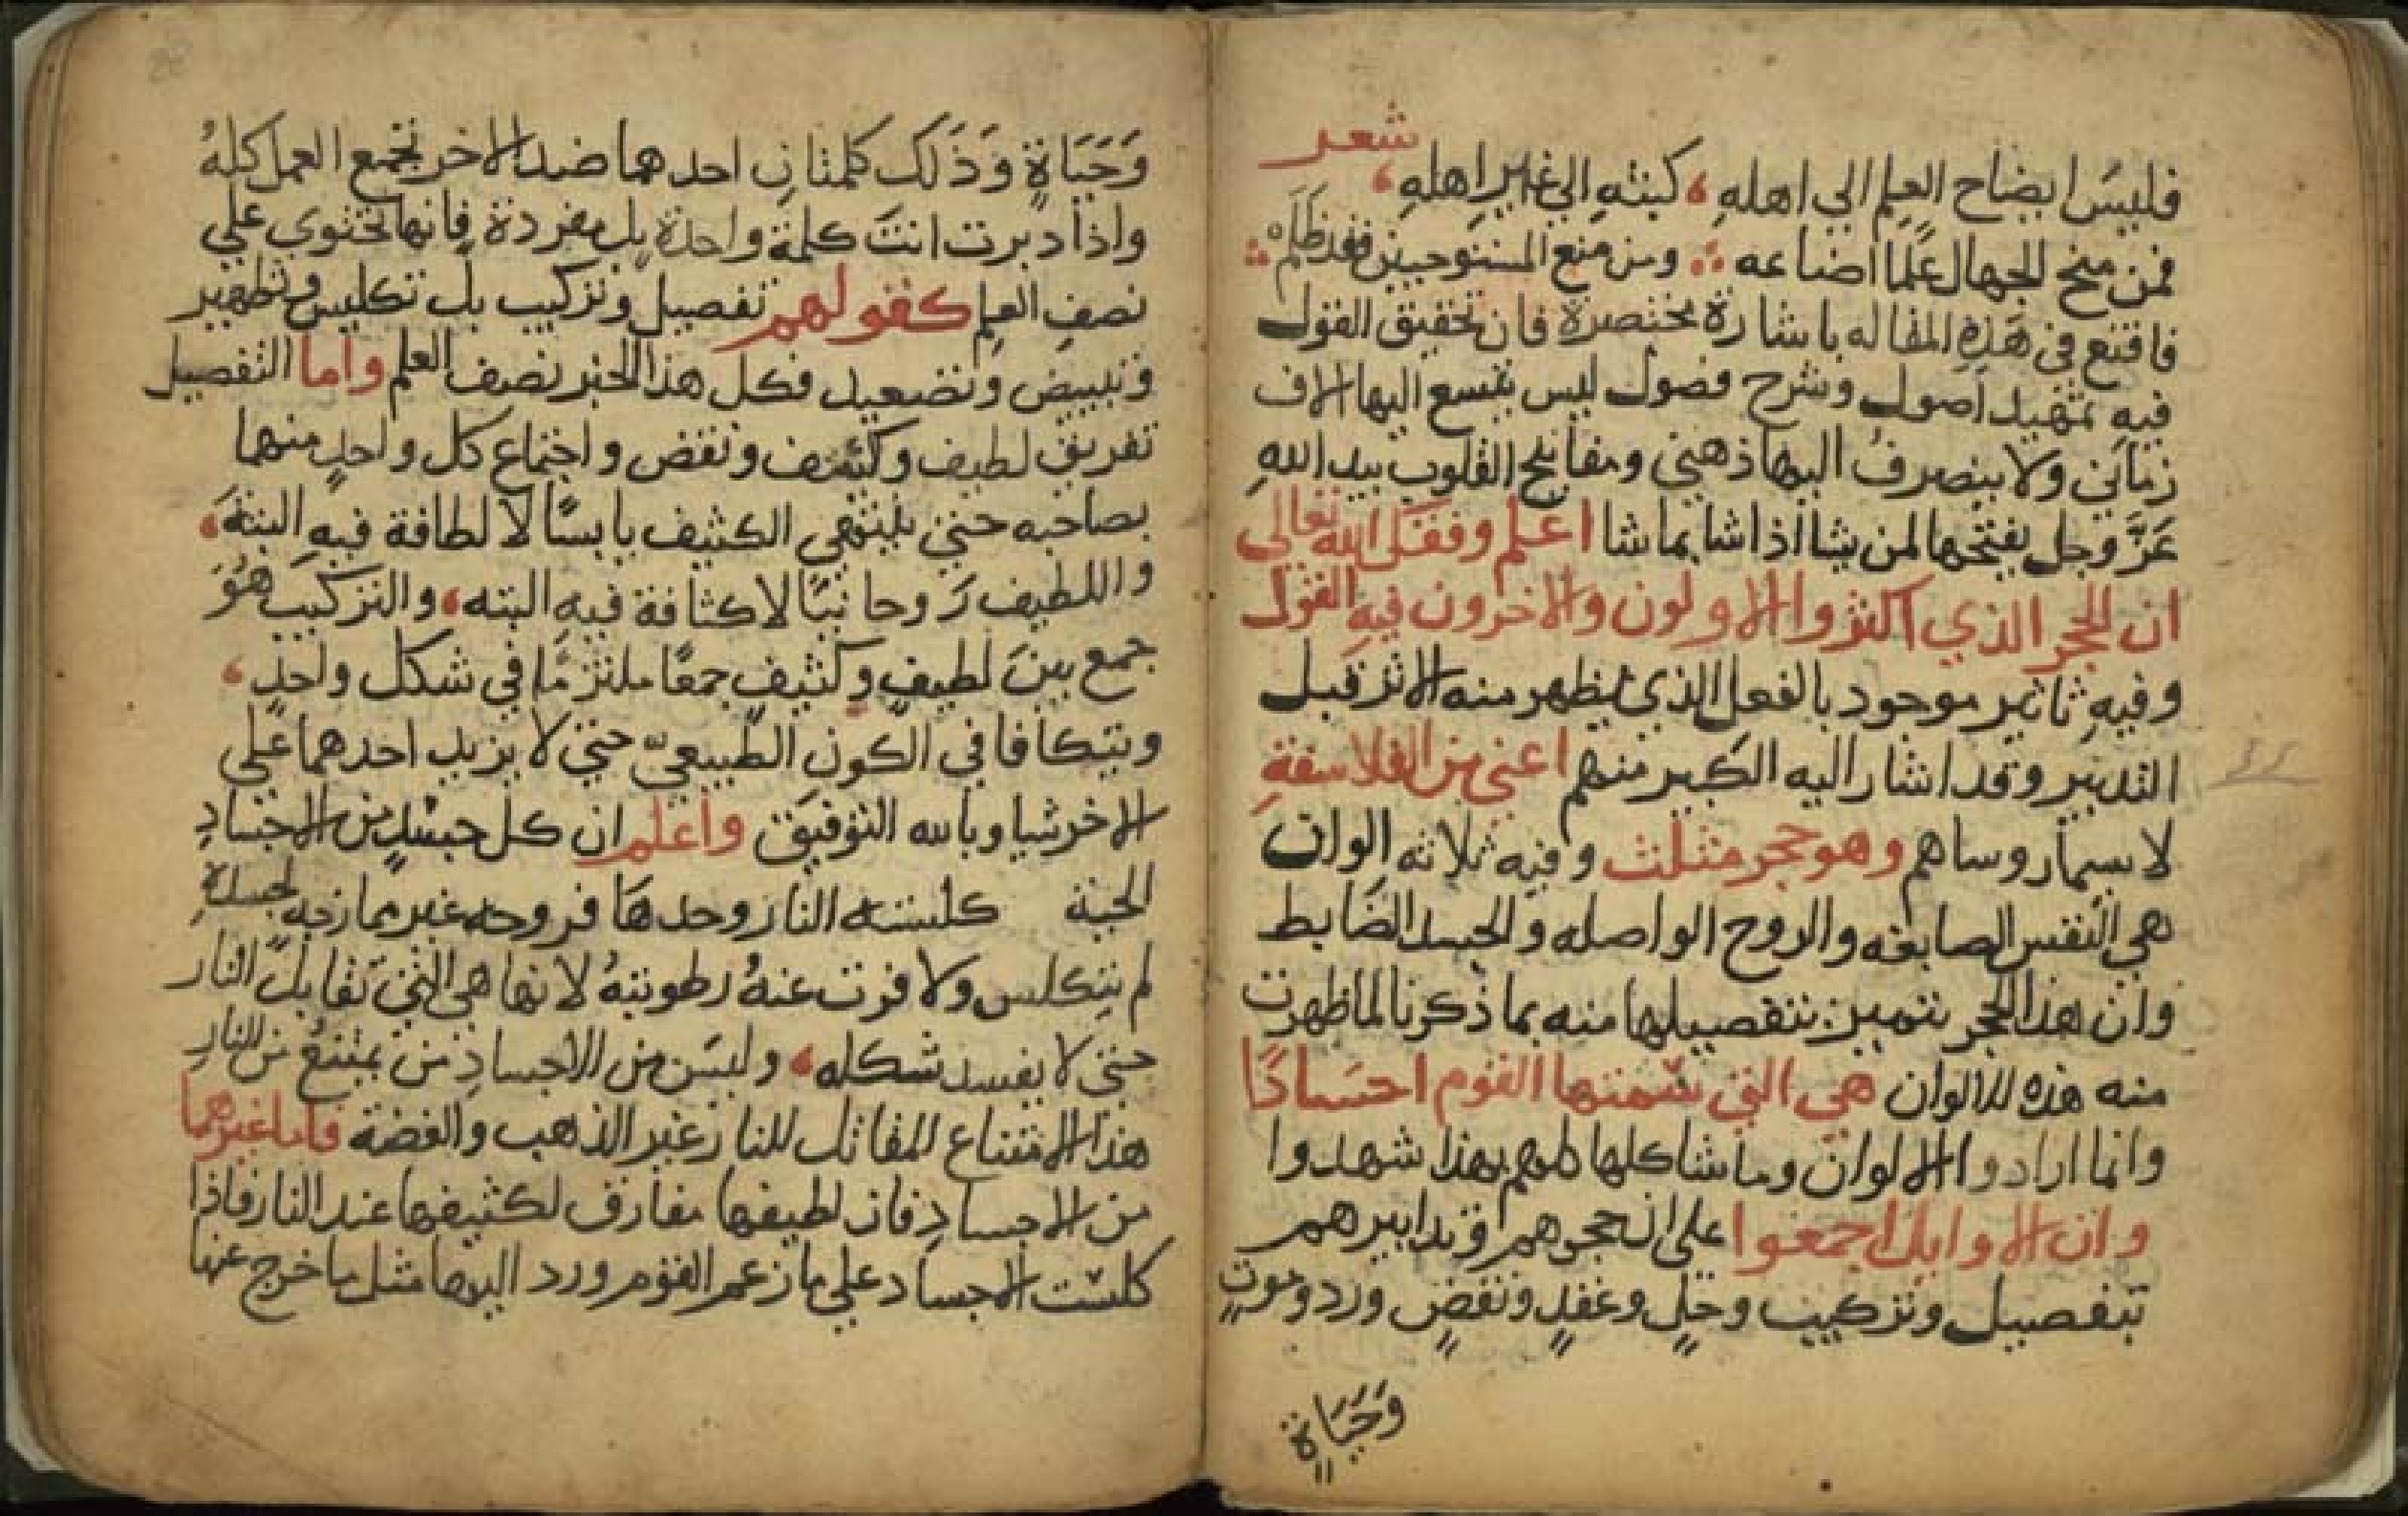 شعر
فليس ايضاح العلم الي اهله، كبثه الي غير اهله،
فمن منح الجهال علما اضاعه ∴ ومن منع المستوجبين فقد ظلم ∴
فاقتنع في هذه المقاله باشارة مختصرة فان تحقيق القول
فيه تمهيد اصول وشرح فصول ليس يتسع اليها الاف
زماني ولا ينصرف اليها ذهني ومفاتيح القلوب بيد الله
عز وجل يفتحها لمن يشا اذا شا بما شا اعلم وفقك الله تعالى
ان الحجر الذي اكثروا الاولون والاخرون فيه القول
وفيه تاثير موجود بالفعل الذي يظهر منه الاثر قبل
التدبير وقد اشار اليه الكبير منهم اعني من الفلاسفة
لا سيما روساهم وهو حجر مثلث وفيه ثلاثه الوان
هي النفس الصابغه والروح الواصله والجسد الضابط
وان هذا الحجر تتميز بتفصيلها منه بما ذكرنا لما ظهرت
منه هذه الالوان هي التي سمتها القوم اجسادًا
وانما ارادوا الالوان وما شاكلها بهذا شهدوا
وان الاوايل اجمعوا على ان حجرهم وتدابيرهم
تفصيل وتركيب وحل وعقد ونقض ورد وموت
وَحَيَاةٍ
وَحَيَاةٍ وَذَلك كلمتان احدهما ضد الاخر تجمع العمل كله
واذا دبرت انت كلمة واحدة بل مفردة فانها تحتوي علي
نصف العلم كقولهم تفصيل وتركيب بل تكليس وتطهير
وتبييض وتصعيد فكل هذا الخبر نصف العلم واما التفصيل
تفريق لطيف وكثيف ونقض واجتماع كل واحد منهما
بصاحبه حتي ينتهي الكثيف يابسًا لا لطافة فيه البتة،
واللطيف روحانيًا لا كثافة فيه البته، والتركيب هُوَ
جمع بين لطيف وكثيف جمعًا ملتزمًا في شكل واحدٍ،
ويتكافا في الكون الطبيعي حتي لا يزيد احدهما على
الاخر شيا وبالله التوفيق واعلم ان كل جسدٍ من الاجساد
الحية كلسته النار وحدها فروحه غير ممازجه لجسده
لم يتكلس ولا فرت عنهُ رطوبتهُ لانها هي التي تقابل النار
حتي لا يفسد شكله، وليس من الاجساد من يمتنع من النار
هذا الامتناع المقاتل للنار غير الذهب والفضة فاما غيرهما
من الاجساد فان لطيفها مفارق لكثيفها عند النار فاذا
كلست الاجساد علي ما زعم القوم ورد اليها مثل ما خرج عنها